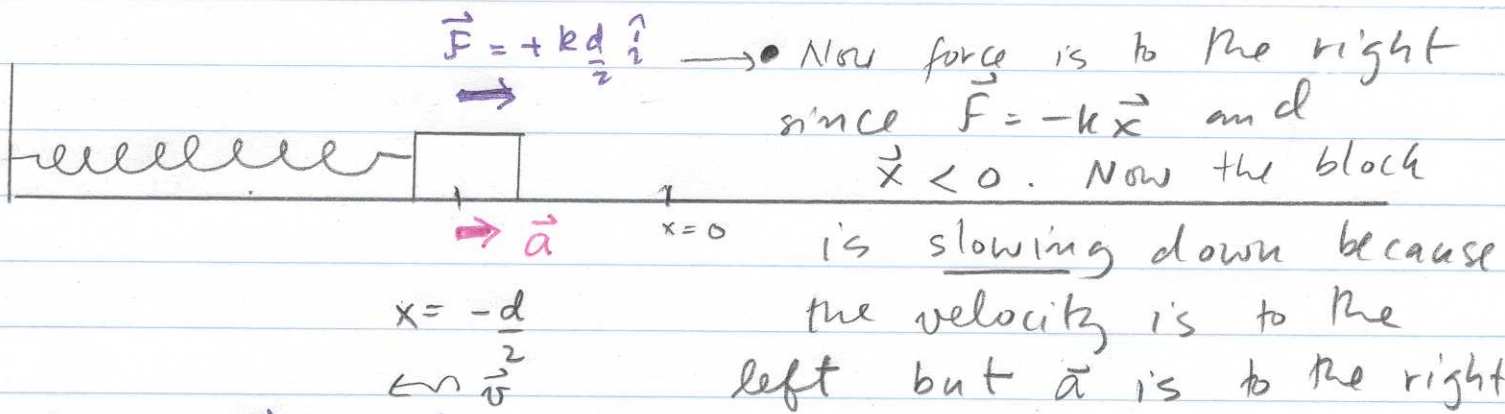 F⃗ = + k d/2 î → • Now force is to the right
since F⃗ = -k x⃗ and
x⃗ < 0. Now the block
a⃗ x=0 is slowing down because
x = -d/2 the velocity is to the
← v⃗ left but a⃗ is to the right